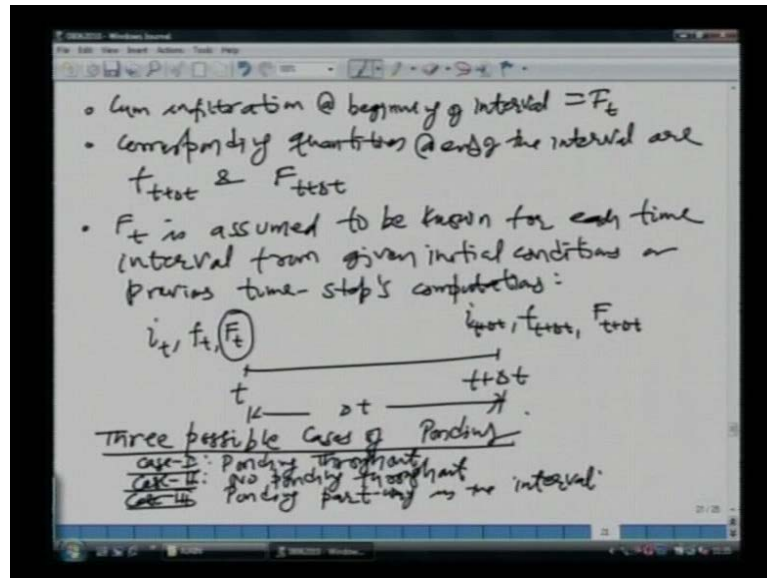 08062010 - Windows Journal
File Edit View Insert Actions Tools Help
• Cum infiltration @ beginning of interval = Ft
• corresponding quantities @ end of the interval are
ft+Δt & Ft+Δt
• Ft is assumed to be known for each time
interval from given initial conditions or
previous time-step's computations:
it, ft, Ft it+Δt, ft+Δt, Ft+Δt
t t+Δt
Δt
Three possible Cases of Ponding
Case-I: Ponding throughout
Case-II: No ponding throughout
Case-III Ponding part-way in the interval.
21/25
21